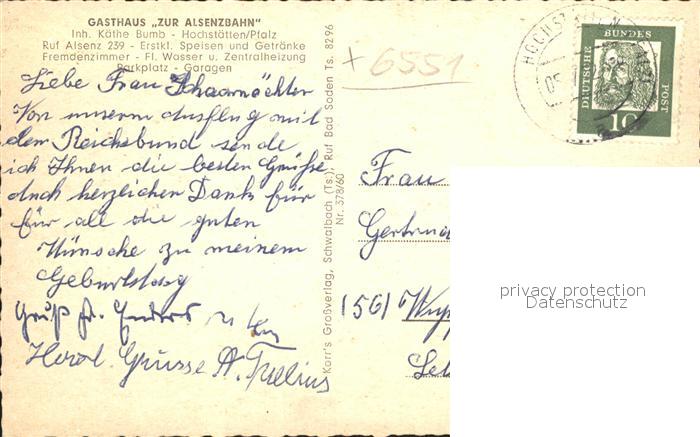 GASTHAUS „ZUR ALSENZBAHN"
Inh. Käthe Bumb - Hochstätten/Pfalz
Ruf Alsenz 239 - Erstkl. Speisen und Getränke
Fremdenzimmer - Fl. Wasser u. Zentralheizung
Parkplatz - Garagen
Liebe Frau Schaarwächter
Von unserm Ausflug mit
dem Reichsbund sende
ich Ihnen die besten Grüße
Auch herzlichen Dank für
für all die guten
Wünsche zu meinem
Geburtstag
Gruß Fr. Enders
Herzl. Grüsse A.
Korr's Großverlag, Schwalbach (Ts.), Ruf Bad Soden Ts. 8296
Nr. 378/60
+ 6551
HOCHSTÄTTEN
05
DEUTSCHE BUNDES POST
10
Frau
Gertru
(56) Wup
privacy protection
Datenschutz